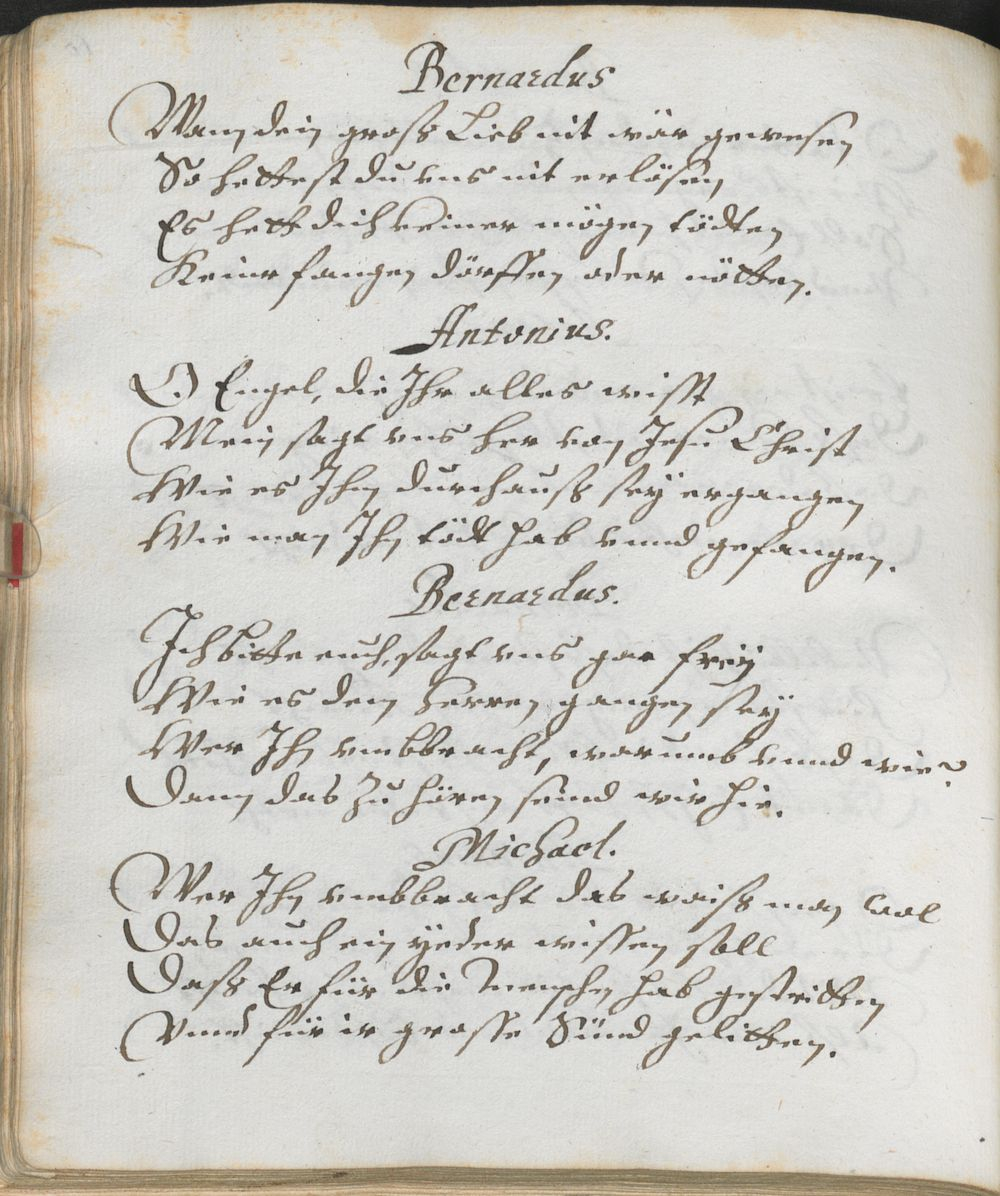 Bernardus
Wann dein gross Lieb nit wär gewesen
So hettest du vns nit erlösen,
Es hett dich keiner mögen tödten
Keinr fangen dörffen oder nötten.
Antonius.
O Engel, die Ihr alles wisst
Mein sagt vns her von Jesu Christ
Wie es Ihm durchauss sey ergangen
Wie man Ihn tödt hab vnnd gefangen.
Bernardus.
Ich bitte euch, sagt vns gar freÿ
Wie es dem Herren gangen seÿ
Wer Ihn vmbbracht, warumb vnnd wie?
Dann das Zu hören seind wir hie.
Michael.
Wer Ihn vmbbracht das waiss man wol
Das auch ein yeder wissen soll
Dass Er für die Menschen hab gestritten
Vnnd für ir grosse Sünd gelitten.